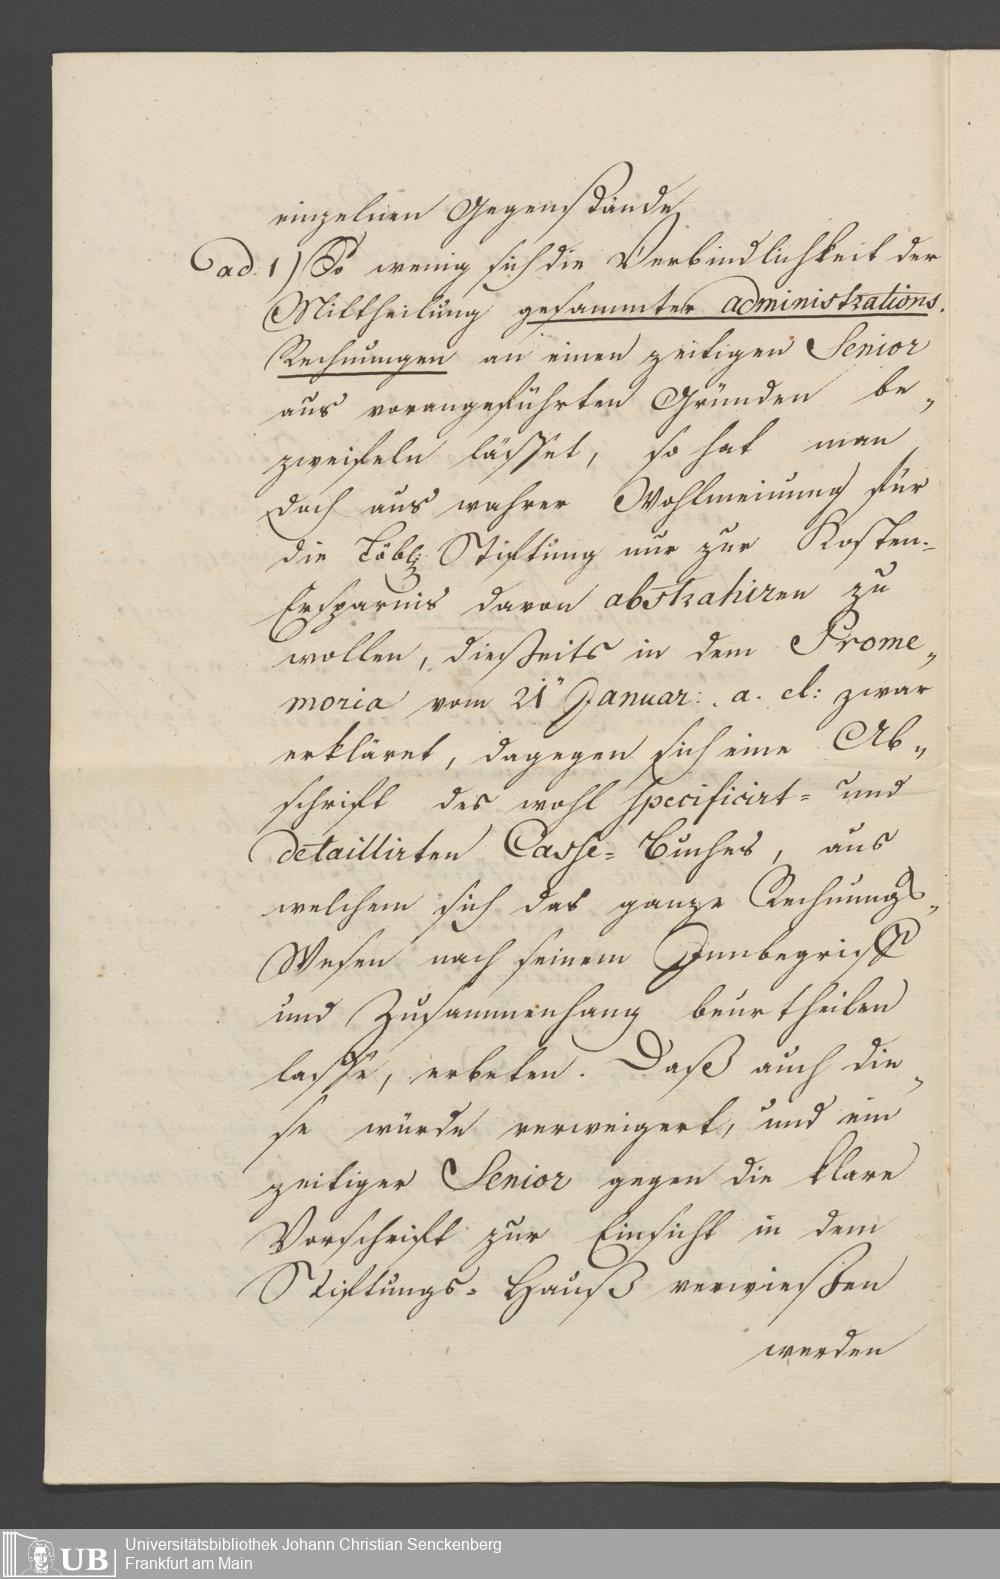 einzelnen Gegenstände
ad. 1) So wenig sich die Verbindlichkeit der
Mittheilung gesammter administrations-
Rechnungen an einen zeitigen Senior
aus vorangeführten Gründen be„
zweifeln lässet, so hat man
doch aus wahrer Wohlmeinung für
die Löbl: Stiftung nur zur Kosten-
Ersparnis davon abstrahiren zu
wollen, diesseits in dem Prome„
moria vom 21" Januar: a. cl: zwar
erkläret, dagegen sich eine Ab„
schrift des wohl specificirt= und
detaillirten Casse= Buches, aus
welchem sich das ganze Rechnungs„
Wesen nach seinem Innbegriff
und Zusammenhang beurtheilen
lasse, erbeten. Daß auch die„
se würde verweigert, und ein
zeitiger Senior gegen die klare
Vorschrift zur Einsicht in dem
Stiftungs= Hauß verwiesen
werden
UB
Universitätsbibliothek Johann Christian Senckenberg
Frankfurt am Main